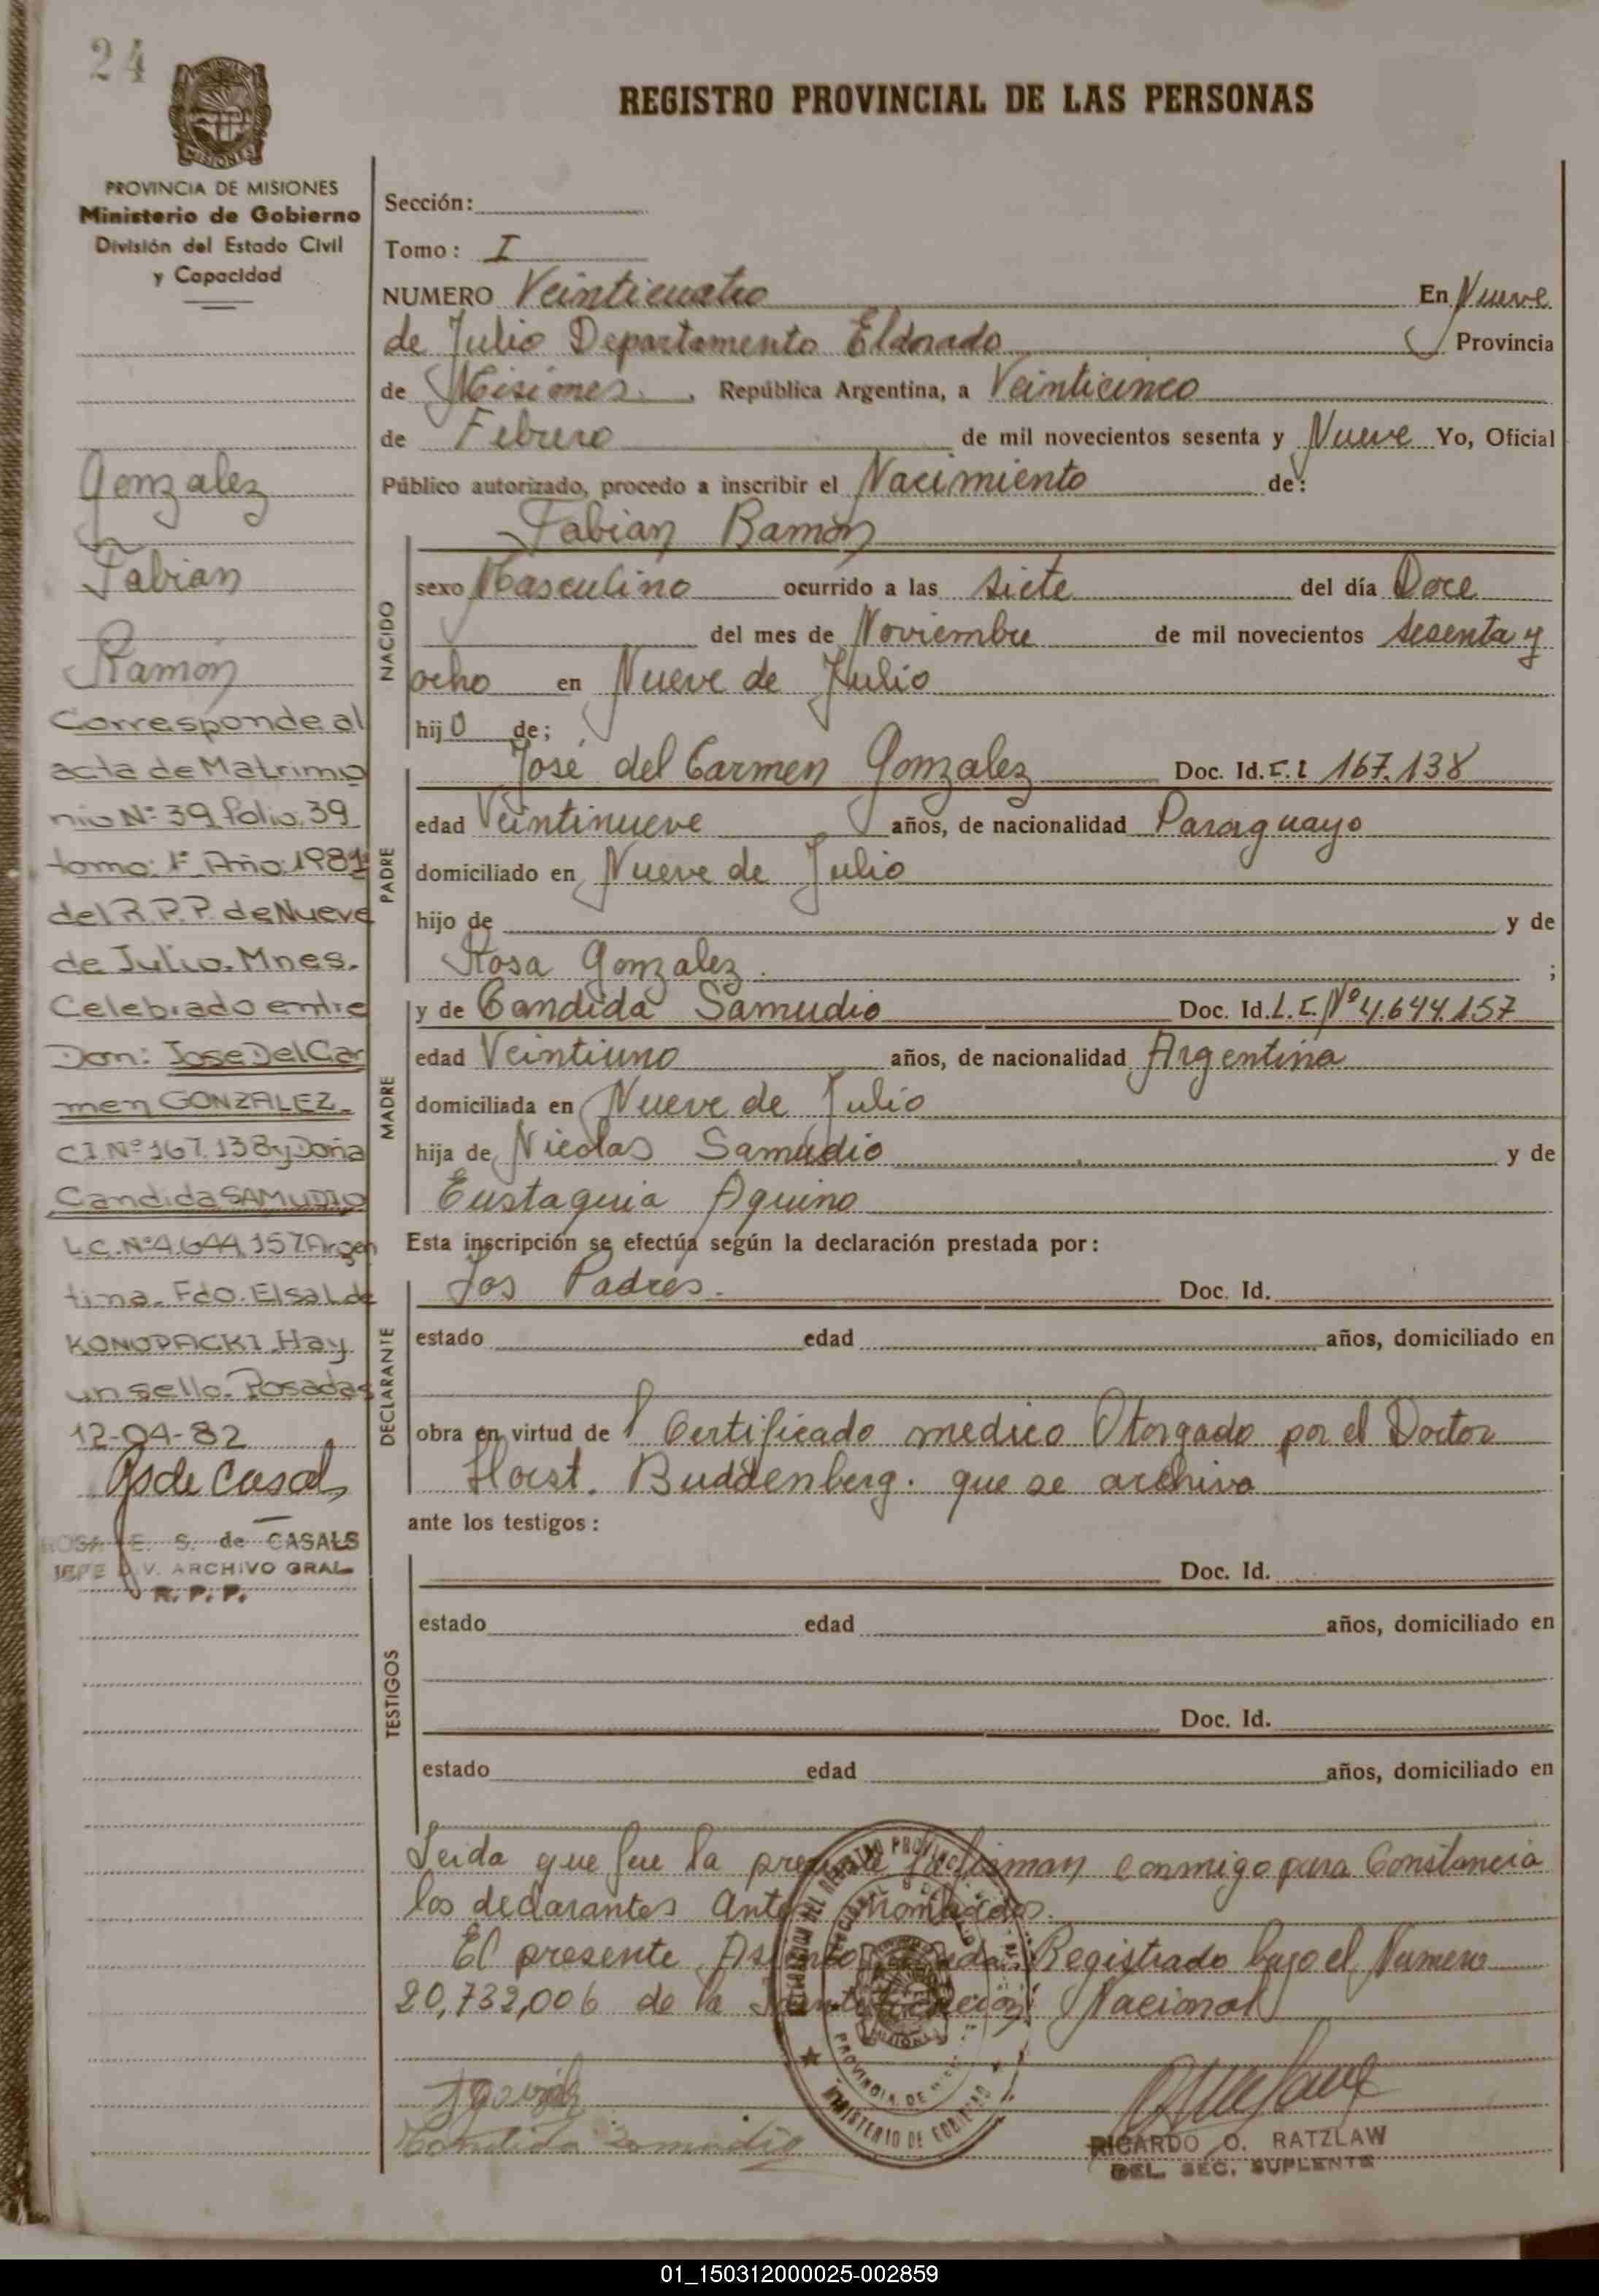 24
REGISTRO PROVINCIAL DE LAS PERSONAS
MISIONES
PROVINCIA DE MISIONES
Ministerio de Gobierno
División del Estado Civil
y Capacidad
Gonzalez
Fabian
Ramón
Corresponde al
acta de Matrimo
nio Nº 39 folio 39
tomo: 1º Año 1981
del R.P.P. de Nueve
de Julio. Mnes.
Celebrado entre
Don: Jose Del Car
men GONZALEZ
CI Nº 167.138 y Doña
Candida SAMUDIO
L.C. Nº 4.644.157 Argen
tina. Fdo. Elsa L de
KONOPACKI. Hay
un sello. Posadas
12-04-82
ROSA E. S. de CASALS
JEFE DIV. ARCHIVO GRAL
R. P. P.
Sección:
Tomo: I
NUMERO Veinticuatro En Nueve
de Julio Departamento Eldorado Provincia
de Misiones, República Argentina, a Veinticinco
de Febrero de mil novecientos sesenta y Nueve Yo, Oficial
Público autorizado, procedo a inscribir el Nacimiento de:
NACIDO
Fabian Ramón
sexo Masculino ocurrido a las siete del día Doce
del mes de Noviembre de mil novecientos sesenta y
ocho en Nueve de Julio
hijo de;
PADRE
José del Carmen Gonzalez Doc. Id. C.I 167.138
edad Veintinueve años, de nacionalidad Paraguayo
domiciliado en Nueve de Julio
hijo de y de
Rosa Gonzalez ;
MADRE
y de Candida Samudio Doc. Id. L.C. Nº 4.644.157
edad Veintiuno años, de nacionalidad Argentina
domiciliada en Nueve de Julio
hija de Nicolas Samudio y de
Eustaquia Aquino
Esta inscripción se efectúa según la declaración prestada por:
DECLARANTE
Los Padres. Doc. Id.
estado edad años, domiciliado en
obra en virtud de Certificado medico Otorgado por el Doctor
Horst. Buddenberg. que se archiva
ante los testigos:
TESTIGOS
Doc. Id.
estado edad años, domiciliado en
Doc. Id.
estado edad años, domiciliado en
Leida que fue la presente la firman conmigo para Constancia
los declarantes Antes Nombrados.
El presente Asiento queda Registrado bajo el Numero
20,732,006 de la Identificacion Nacional
Candida Samudio
MINISTERIO DE GOBIERNO
RICARDO O. RATZLAW
DEL. SEC. SUPLENTE
01_150312000025-002859